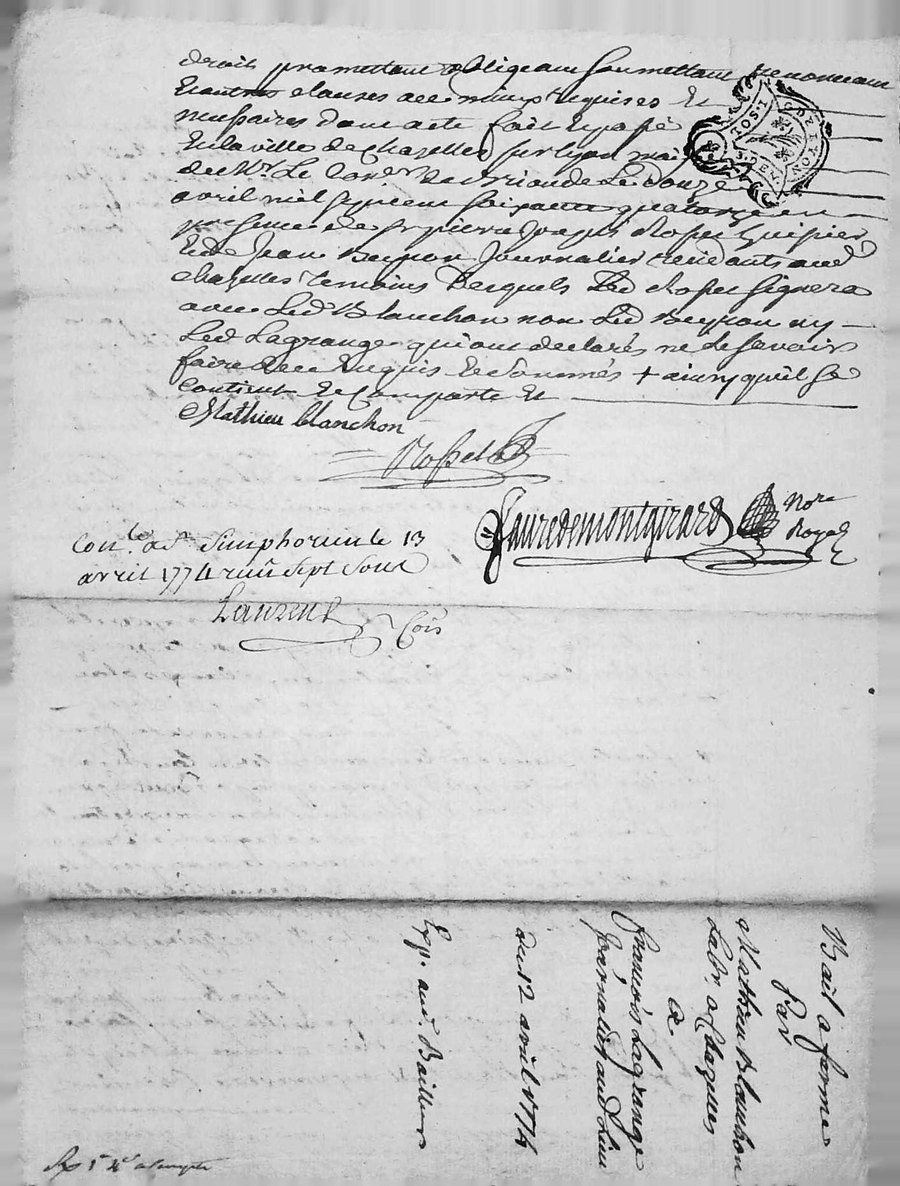 droit promettant obligeant soumettant renonceant
Et autres clauses
Et
necessaires dont acte fait Et passé
En la ville de Chazelles sur lyon maison
de Mr. Le Le douze
avril mil sept cent soixante quatorze en
presence de sr. pierre Rosset huissier
Et de Jean Beyron Journalier residants aud
chazelles temoins Lesquels Led Rosset signera
avec Led. Blanchon non Led Beyron ny
Led Lagrange qui ont declarés ne le scavoir
faire de ce Enquis Et sommés + ainsy qu'il se
contient Et Comporte Et
Mathieu blanchon
Rosset
fauredemontgirard Nore
Royal
Conlé a St Simphorien le 13
avril 1774 sept sous
Laurent
Cois
Bail a ferme
Par
Mathieu Blanchon
Labr. a
a
francois Lagrange
journalier aud Lieu
du 12 avril 1774
Exp. aud. Bailleur